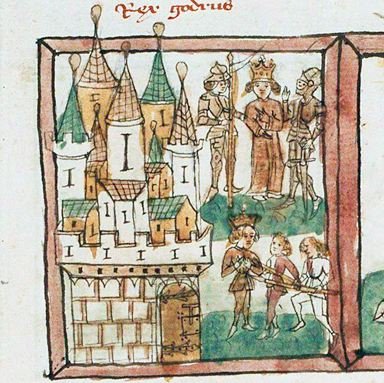 Rex godrus